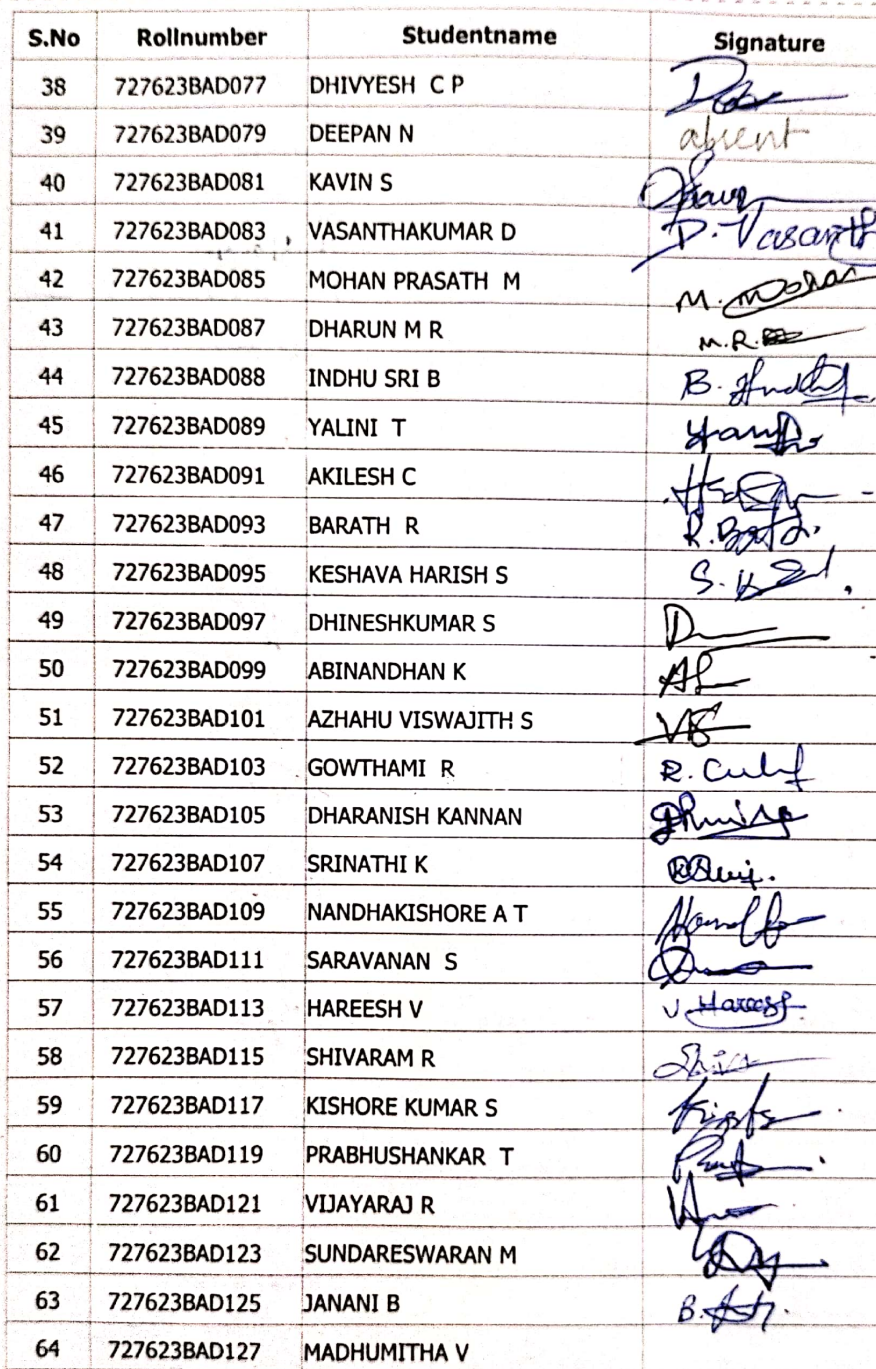 S.No Rollnumber Studentname Signature
38 727623BAD077 DHIVYESH C P
39 727623BAD079 DEEPAN N absent
40 727623BAD081 KAVIN S
41 727623BAD083 VASANTHAKUMAR D D. Vasanth
42 727623BAD085 MOHAN PRASATH M M. Mohan
43 727623BAD087 DHARUN M R M.R.
44 727623BAD088 INDHU SRI B B.
45 727623BAD089 YALINI T
46 727623BAD091 AKILESH C
47 727623BAD093 BARATH R R.
48 727623BAD095 KESHAVA HARISH S S.
49 727623BAD097 DHINESHKUMAR S
50 727623BAD099 ABINANDHAN K
51 727623BAD101 AZHAHU VISWAJITH S
52 727623BAD103 GOWTHAMI R R.
53 727623BAD105 DHARANISH KANNAN
54 727623BAD107 SRINATHI K
55 727623BAD109 NANDHAKISHORE A T
56 727623BAD111 SARAVANAN S
57 727623BAD113 HAREESH V V. Hareesh
58 727623BAD115 SHIVARAM R
59 727623BAD117 KISHORE KUMAR S
60 727623BAD119 PRABHUSHANKAR T
61 727623BAD121 VIJAYARAJ R
62 727623BAD123 SUNDARESWARAN M
63 727623BAD125 JANANI B B.
64 727623BAD127 MADHUMITHA V